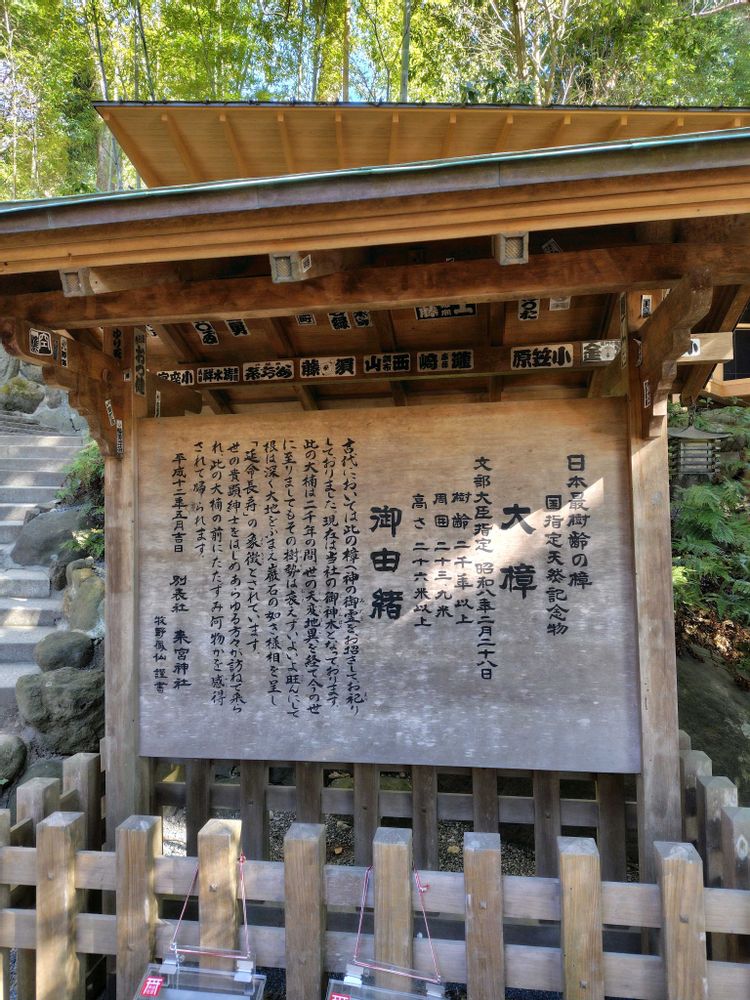 日本最樹齢の樟
国指定天然記念物
大樟
文部大臣指定 昭和八年二月二十八日
樹齢 二千年以上
周囲 二十三、九米
高さ 二十六米以上
御由緒
古代においては此の樟へ神の御霊をお招きしてお祀り
しておりました現在は当社の御神木となっております
此の大楠は二千年の間 世の天変地異を経て今の世
に至りましてもその樹勢は衰えずいよいよ旺んにして
根は深く大地をふまえ巌石の如き様相を呈し
「延命長寿」の象徴とされています。
世の貴顕紳士をはじめあらゆる方々が訪ねて来ら
れ此の大楠の前にたたずみ何物かを感得
されて帰られます。
平成十二年五月吉日
別表社 来宮神社
牧野鳳仙 謹書
小笠原
瀧﨑
西山
須藤